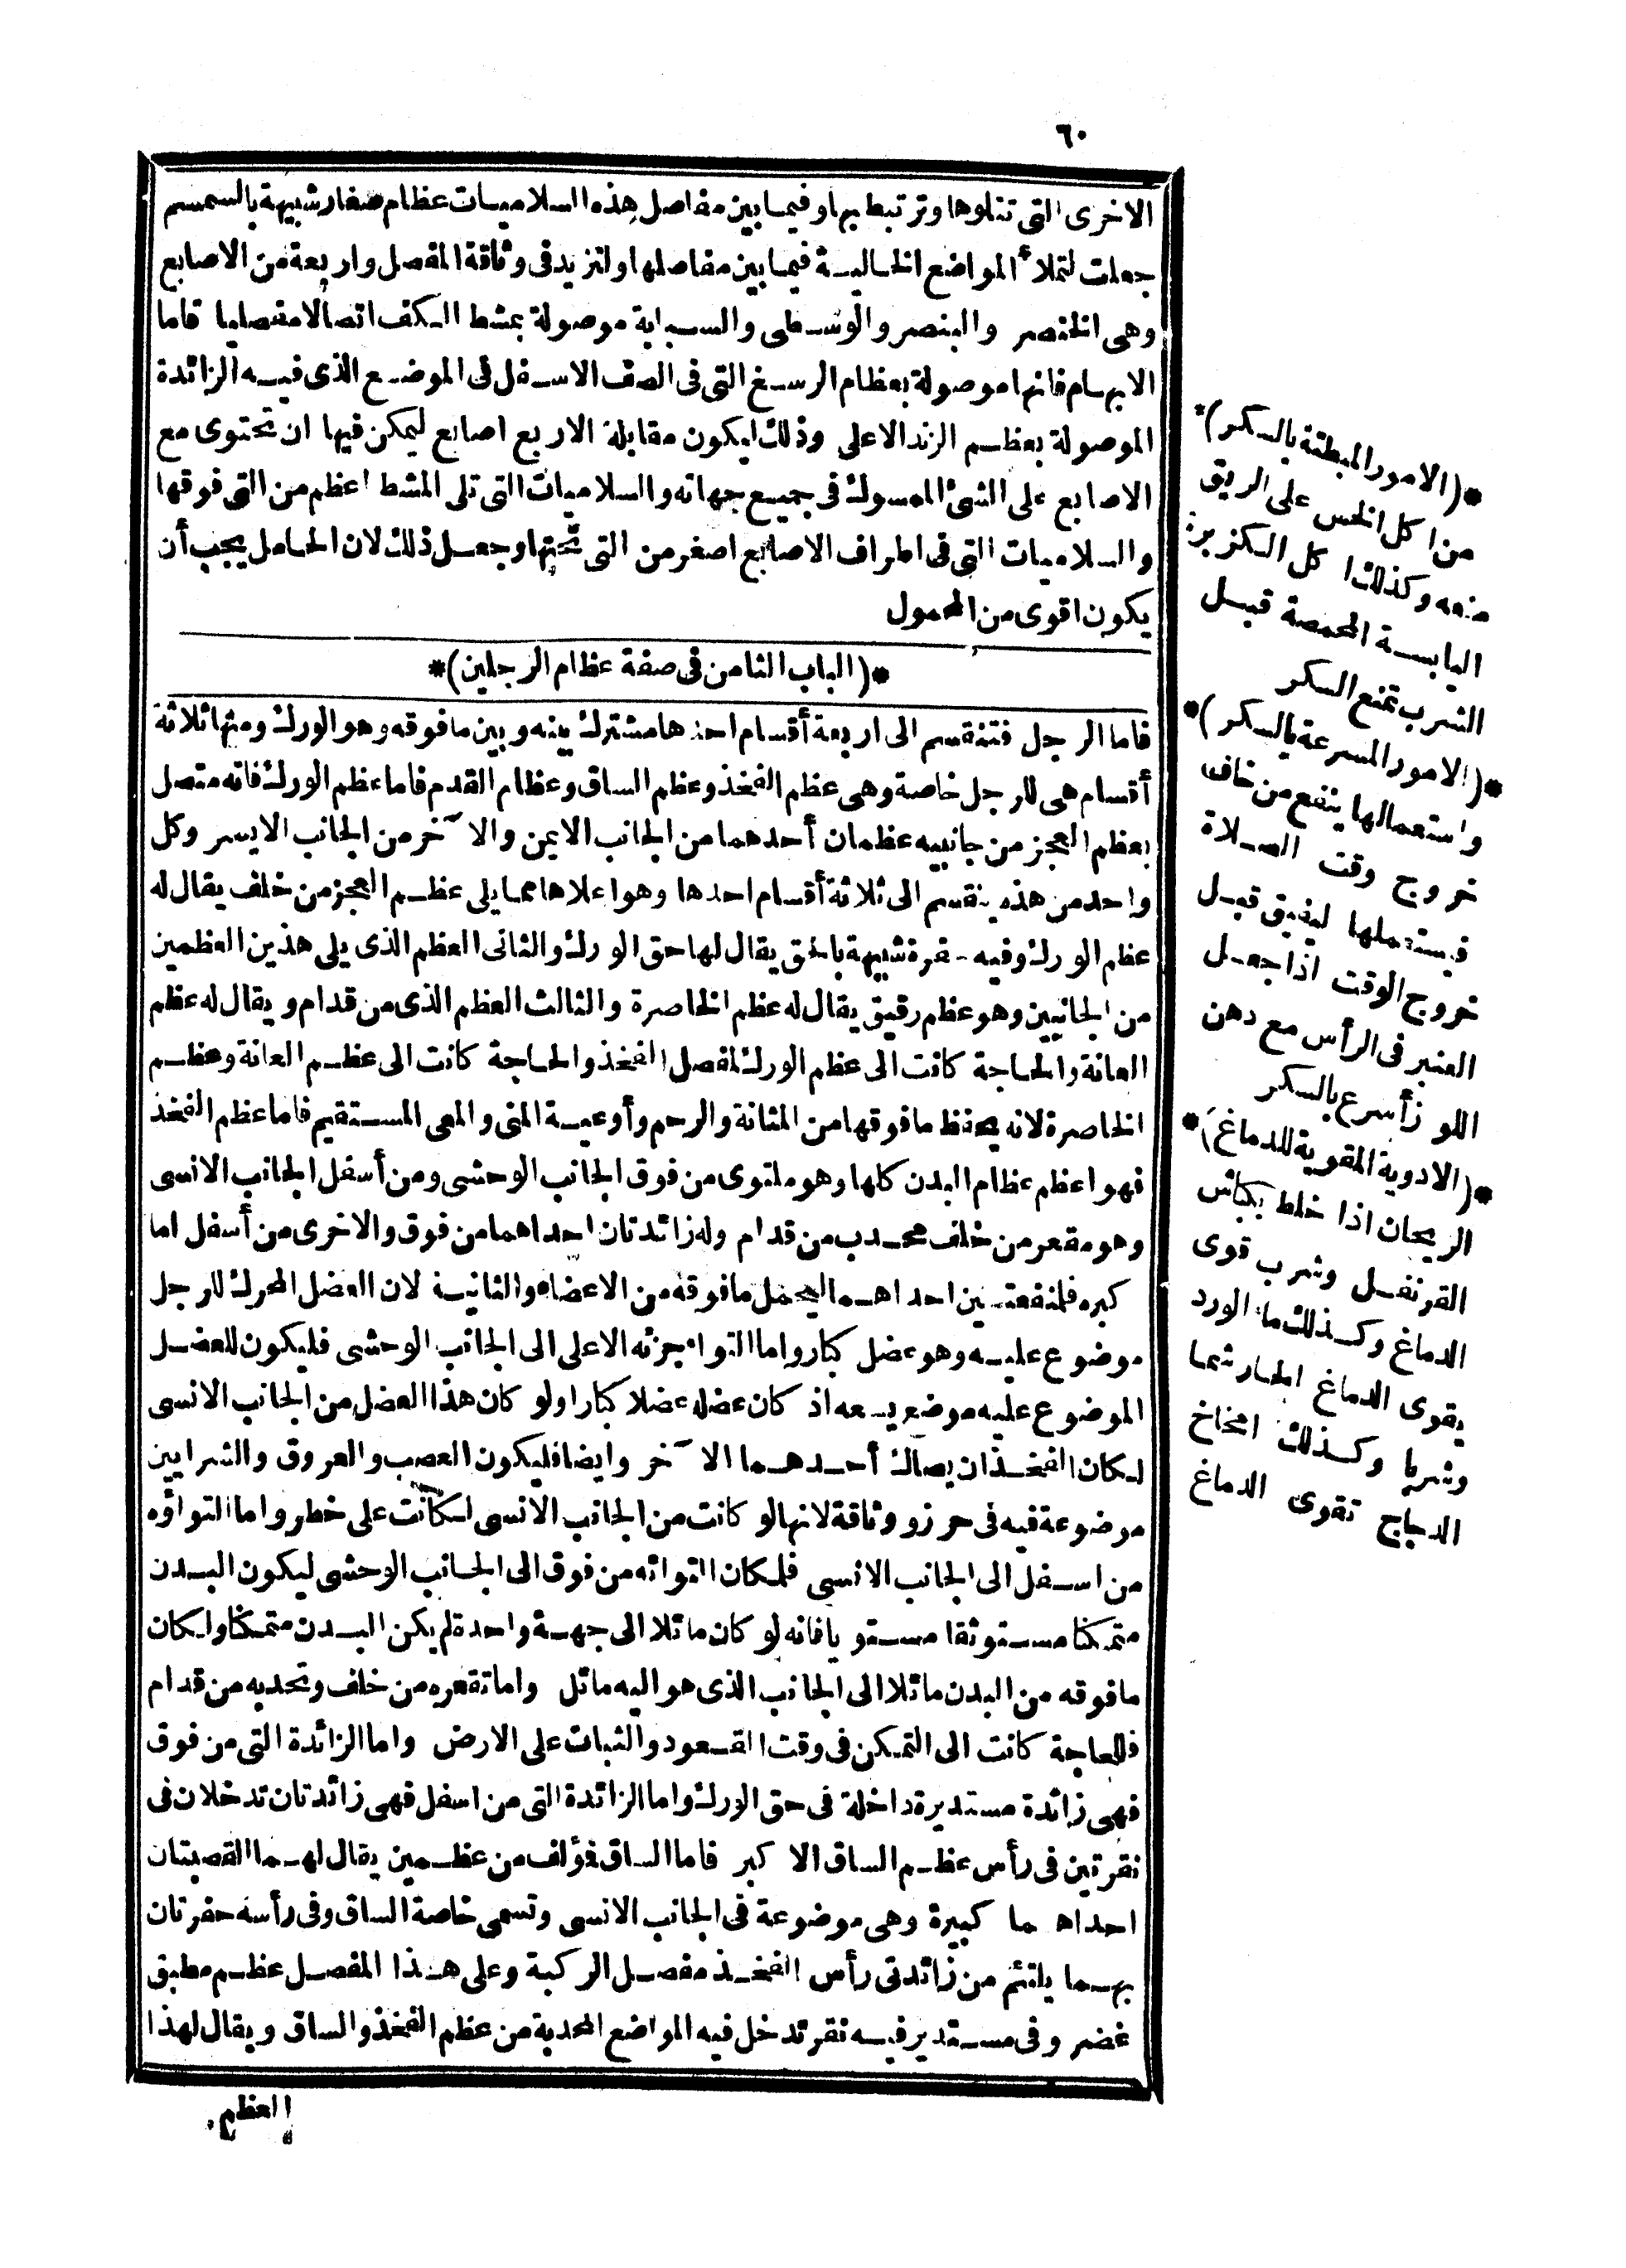 ٦٠
الاخرى التى تتلوها وترتبط بها وفيما بين مفاصل هذه السلاميات عظام صغار شبيهة بالسمسم
جعلت لتملأ المواضع الخالية فيما بين مفاصلها ولتزيد فى وثاقة المفصل واربعة من الاصابع
وهى الخنصر والبنصر والوسطى والسبابة موصولة بمشط الكف اتصالا مفصليا فاما
الابهام فانها موصولة بعظام الرسغ التى فى الصف الاسفل فى الموضع الذى فيه الزائدة
الموصولة بعظم الزند الاعلى وذلك ليكون مقابلة الاربع اصابع ليمكن فيها ان تحتوى مع
الاصابع على الشئ الممسوك فى جميع جهاته والسلاميات التى تلى المشط اعظم من التى فوقها
والسلاميات التى فى اطراف الاصابع اصغر من التى تحتها وجعل ذلك لان الحامل يجب أن
يكون اقوى من المحمول
*(الباب الثامن فى صفة عظام الرجلين)*
فاما الرجل فتنقسم الى اربعة أقسام احدها مشترك بينه وبين ما فوقه وهو الورك ومنها ثلاثة
أقسام هى للرجل خاصة وهى عظم الفخذ وعظم الساق وعظام القدم فاما عظم الورك فانه متصل
بعظم العجز من جانبيه عظمان أحدهما من الجانب الايمن والآخر من الجانب الايسر وكل
واحد من هذه ينقسم الى ثلاثة أقسام احدها وهو اعلاها مما يلى عظم العجز من خلف يقال له
عظم الورك وفيه نقرة شبيهة بالحق يقال لها حق الورك والثانى العظم الذى يلى هذين العظمين
من الجانبين وهو عظم رقيق يقال له عظم الخاصرة والثالث العظم الذى من قدام ويقال له عظم
العانة والحاجة كانت الى عظم الورك لمفصل الفخذ والحاجة كانت الى عظم العانة وعظم
الخاصرة لانه يحفظ ما فوقها من المثانة والرحم وأوعية المنى والمعى المستقيم فاما عظم الفخذ
فهو اعظم عظام البدن كلها وهو ملتوى من فوق الجانب الوحشى ومن أسفل الجانب الانسى
وهو مقعر من خلف محدب من قدام وله زائدتان احداهما من فوق والاخرى من أسفل اما
كبره فلمنفعتين احداهما ليحمل ما فوقه من الاعضاء والثانية لان العضل المحرك للرجل
موضوع عليه وهو عضل كبار واما التواء جزئه الاعلى الى الجانب الوحشى فليكون للعضل
الموضوع عليه موضع يسعه اذ كان عضله عضلا كبارا ولو كان هذا العضل من الجانب الانسى
لكان الفخذان يصاك أحدهما الآخر وايضا فليكون العصب والعروق والشرايين
موضوعة فيه فى حرز ووثاقة لانها لو كانت من الجانب الانسى لكانت على خطر واما التواؤه
من اسفل الى الجانب الانسى فلمكان التوائه من فوق الى الجانب الوحشى ليكون البدن
متمكنا مستوثقا مستويا فانه لو كان مائلا الى جهة واحدة لم يكن البدن متمكنا ولكان
ما فوقه من البدن مائلا الى الجانب الذى هو اليه مائل واما تقعره من خلف وتحدبه من قدام
فللحاجة كانت الى التمكن فى وقت القعود والثبات على الارض واما الزائدة التى من فوق
فهى زائدة مستديرة داخلة فى حق الورك واما الزائدة التى من اسفل فهى زائدتان تدخلان فى
نقرتين فى رأس عظم الساق الاكبر فاما الساق فمؤلف من عظمين يقال لهما القصبتان
احداهما كبيرة وهى موضوعة فى الجانب الانسى وتسمى خاصة الساق وفى رأسه حفرتان
بهما يلتئم من زائدتى رأس الفخذ مفصل الركبة وعلى هذا المفصل عظم مطبق
غضر وفى مستدير فيه نقر تدخل فيه المواضع المحدبة من عظم الفخذ والساق ويقال لهذا
العظم
*(الامور المبطئة بالسكر)*
من اكل الخس على الريق
منعه وكذلك اكل الكزبرة
اليابسة المحمصة قبل
الشرب تمنع السكر
*(الامور المسرعة بالسكر)*
واستعمالها ينفع من خاف
خروج وقت الصلاة
فيستعملها ليفيق قبل
خروج الوقت اذا جعل
العنبر فى الرأس مع دهن
اللوز أسرع بالسكر
*(الادوية المقوية للدماغ)*
الريحان اذا خلط بكباش
القرنفل وشرب قوى
الدماغ وكذلك ماء الورد
يقوى الدماغ الحار شما
وشربا وكذلك امخاخ
الدجاج تقوى الدماغ